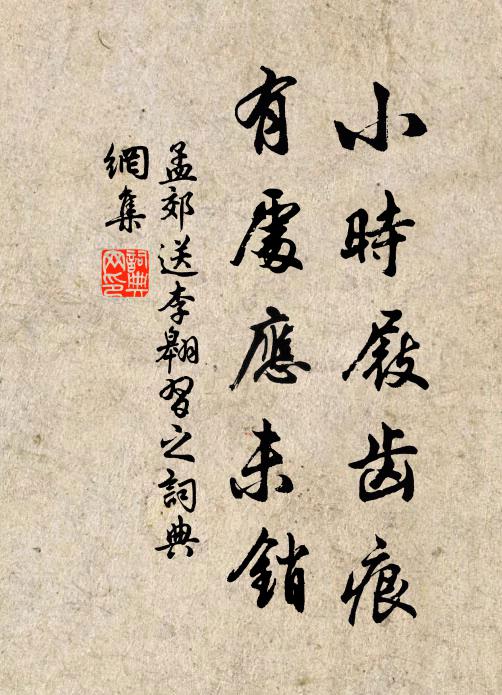 小時屐齿痕
有處應未銷
孟郊送李翱習之詞典
網集
詞典
网印